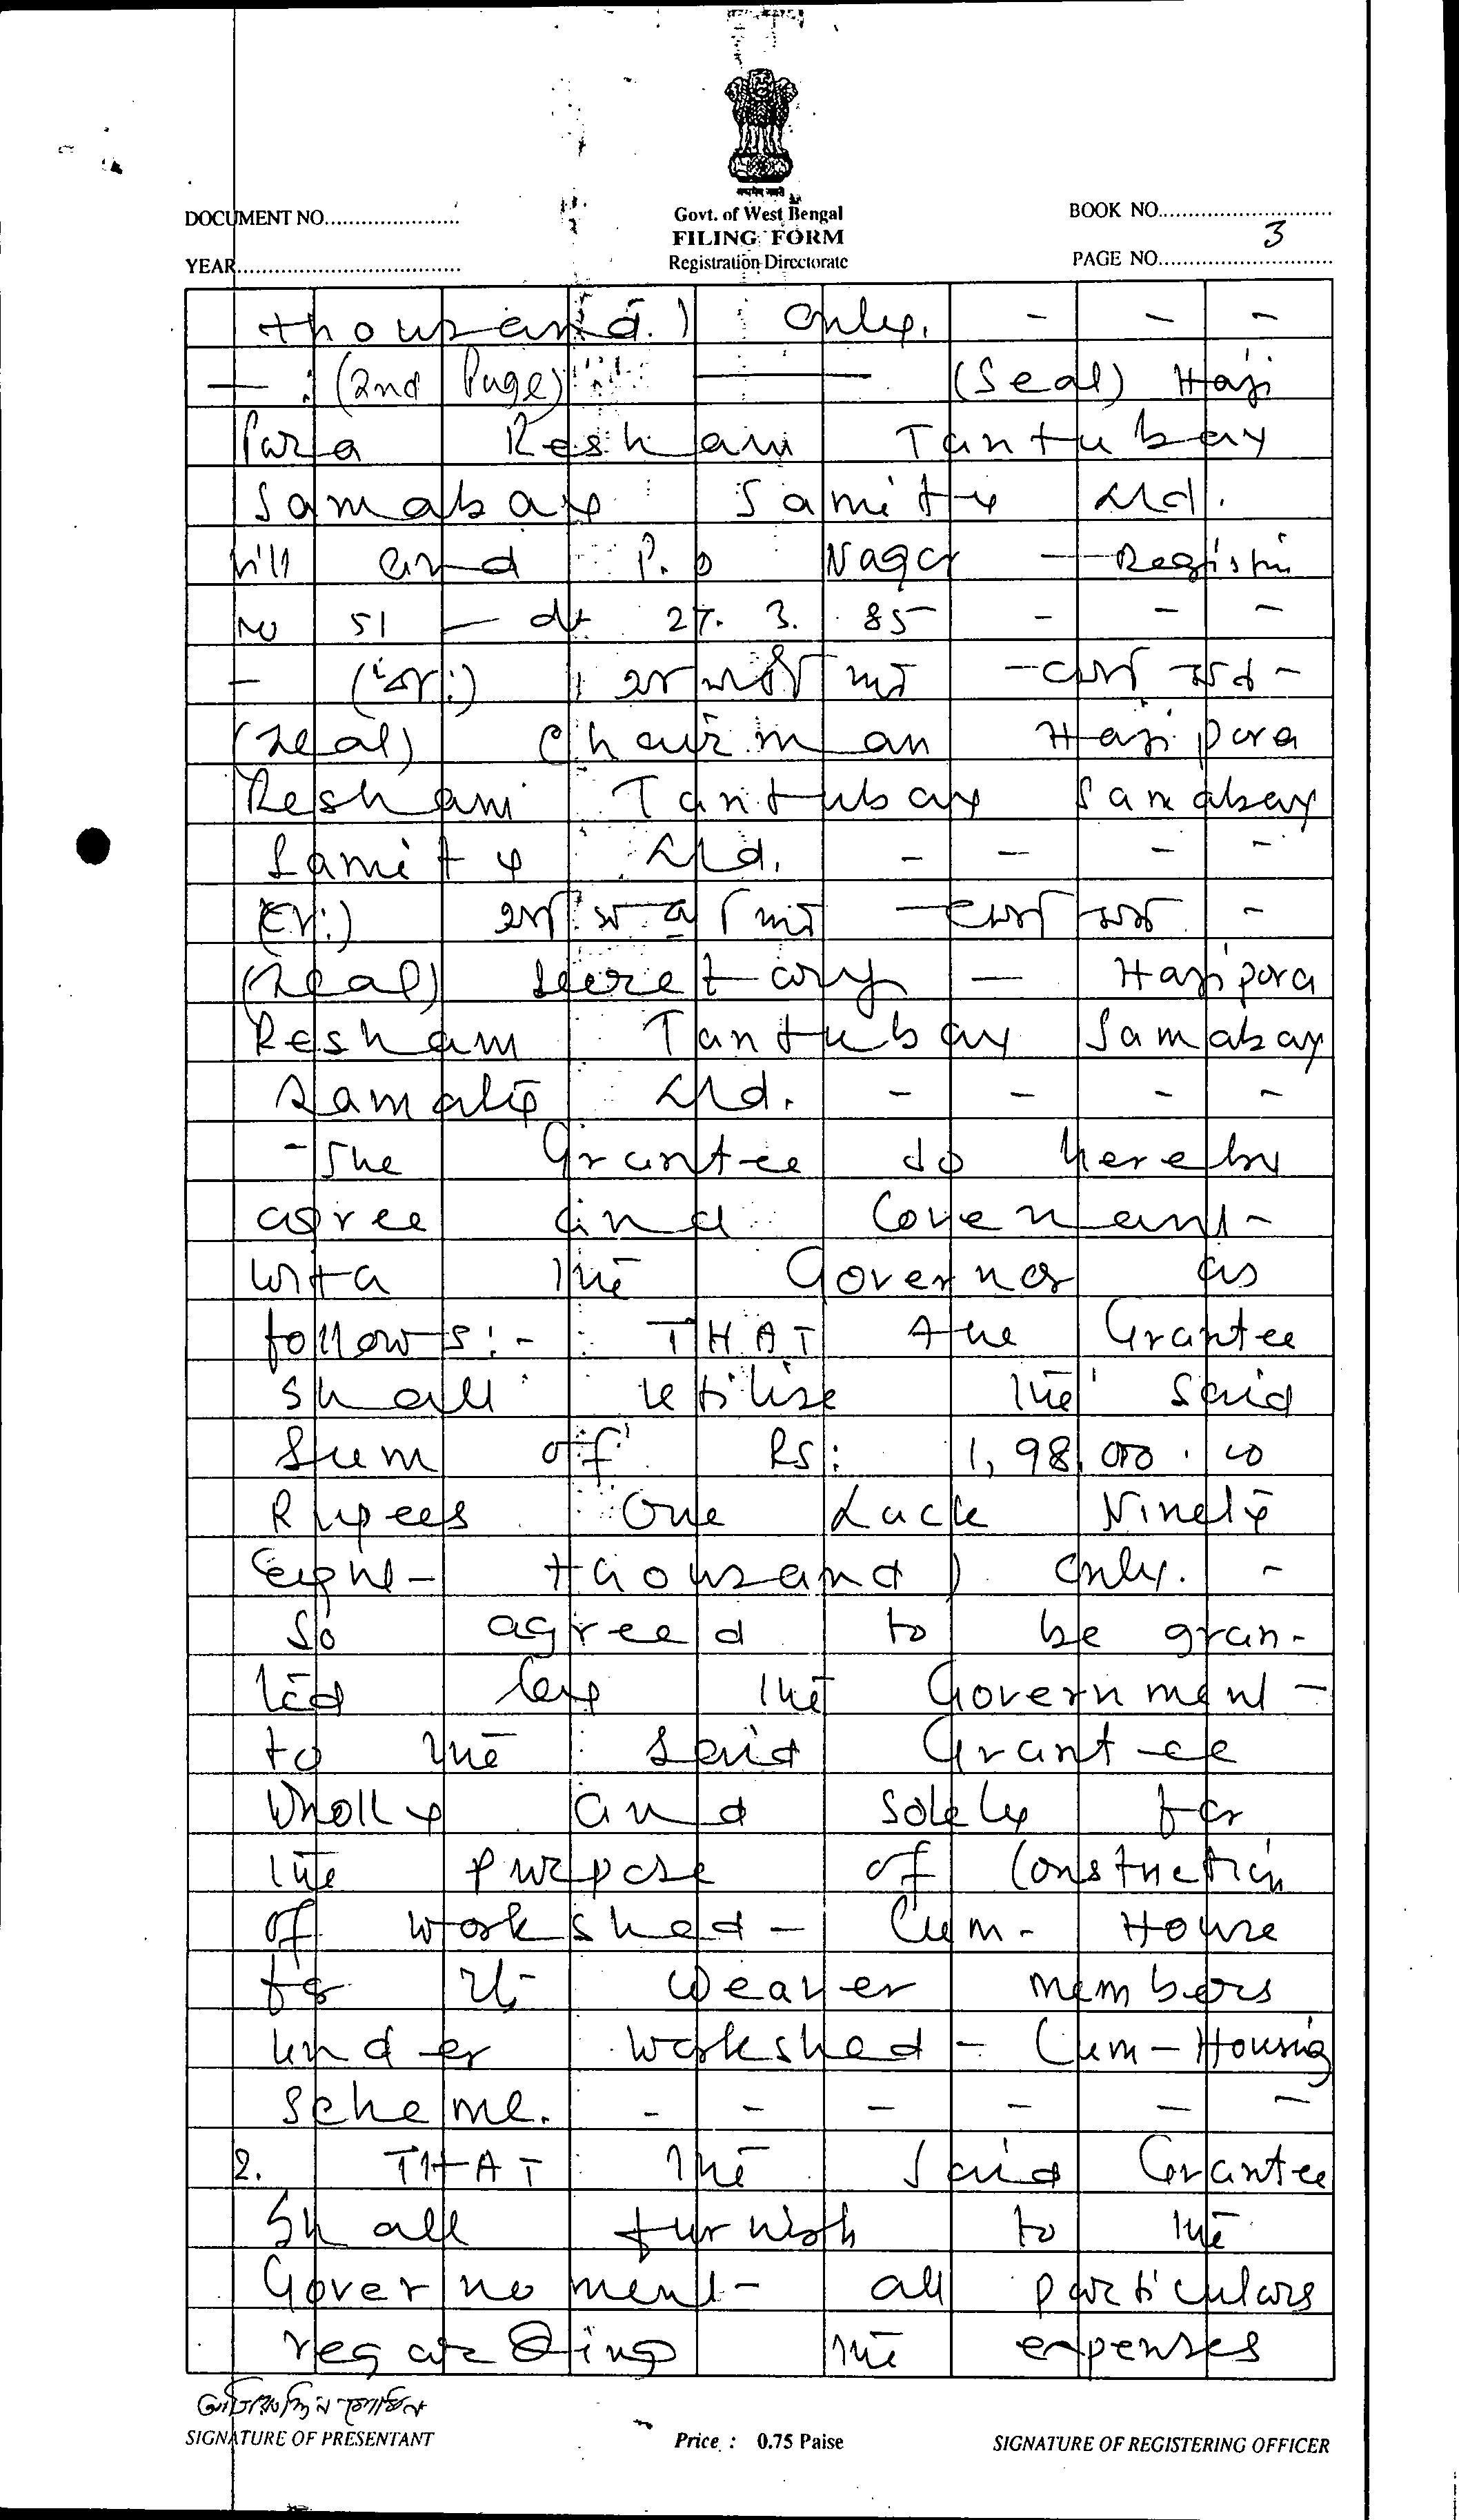 सत्यमेव जयते
DOCUMENT NO.....................
Govt. of West Bengal
BOOK NO...........................
FILING FORM
3
YEAR...................................
Registration Directorate
PAGE NO...........................
thousand.) only. - - -
- : (2nd Page) ——— (Seal) Haji
Para Resham Tantubay
Samabay Samity Ltd.
Vill and P.O Nagar — Registn
No 51 — dt 27. 3. 85 - - -
(Seal) Chairman Hazipara
Resham Tantubay Samabay
Samity Ltd. - - - -
(Seal) Secretary — Hazipara
Resham Tantubay Samabay
Samaty Ltd. - - - -
- The Grantee do hereby
agree and Covenant
with the Governor as
follows:- THAT the Grantee
shall utilise the said
Sum of Rs: 1,98,000.00
Rupees One Lack Ninety
Eight thousand) only. -
So agreed to be gran-
ted by the Government
to the said Grantee
Wholly and solely for
the purpose of Construction
of workshed - Cum - House
for its weaver members
under workshed - Cum - Housing
scheme. - - - - - -
2. THAT the said Grantee
Shall furnish to the
Governoment all particulars
regarding the expenses
SIGNATURE OF PRESENTANT
Price : 0.75 Paise
SIGNATURE OF REGISTERING OFFICER